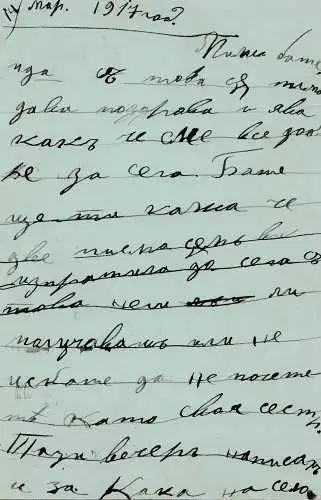 14 мар. 1917 год?
Пиша бате,
ида съ това си писмо
давам поздрава и ява
какъ че сме все здра
ве за сега. Бате
ще ти кажа че
две писма съмъ ви
изпратила до сега с
това чели ли
получавашъ или не
искате да не почете
тъ като своя сест
Тази вечеръ написах
и за Кака на село